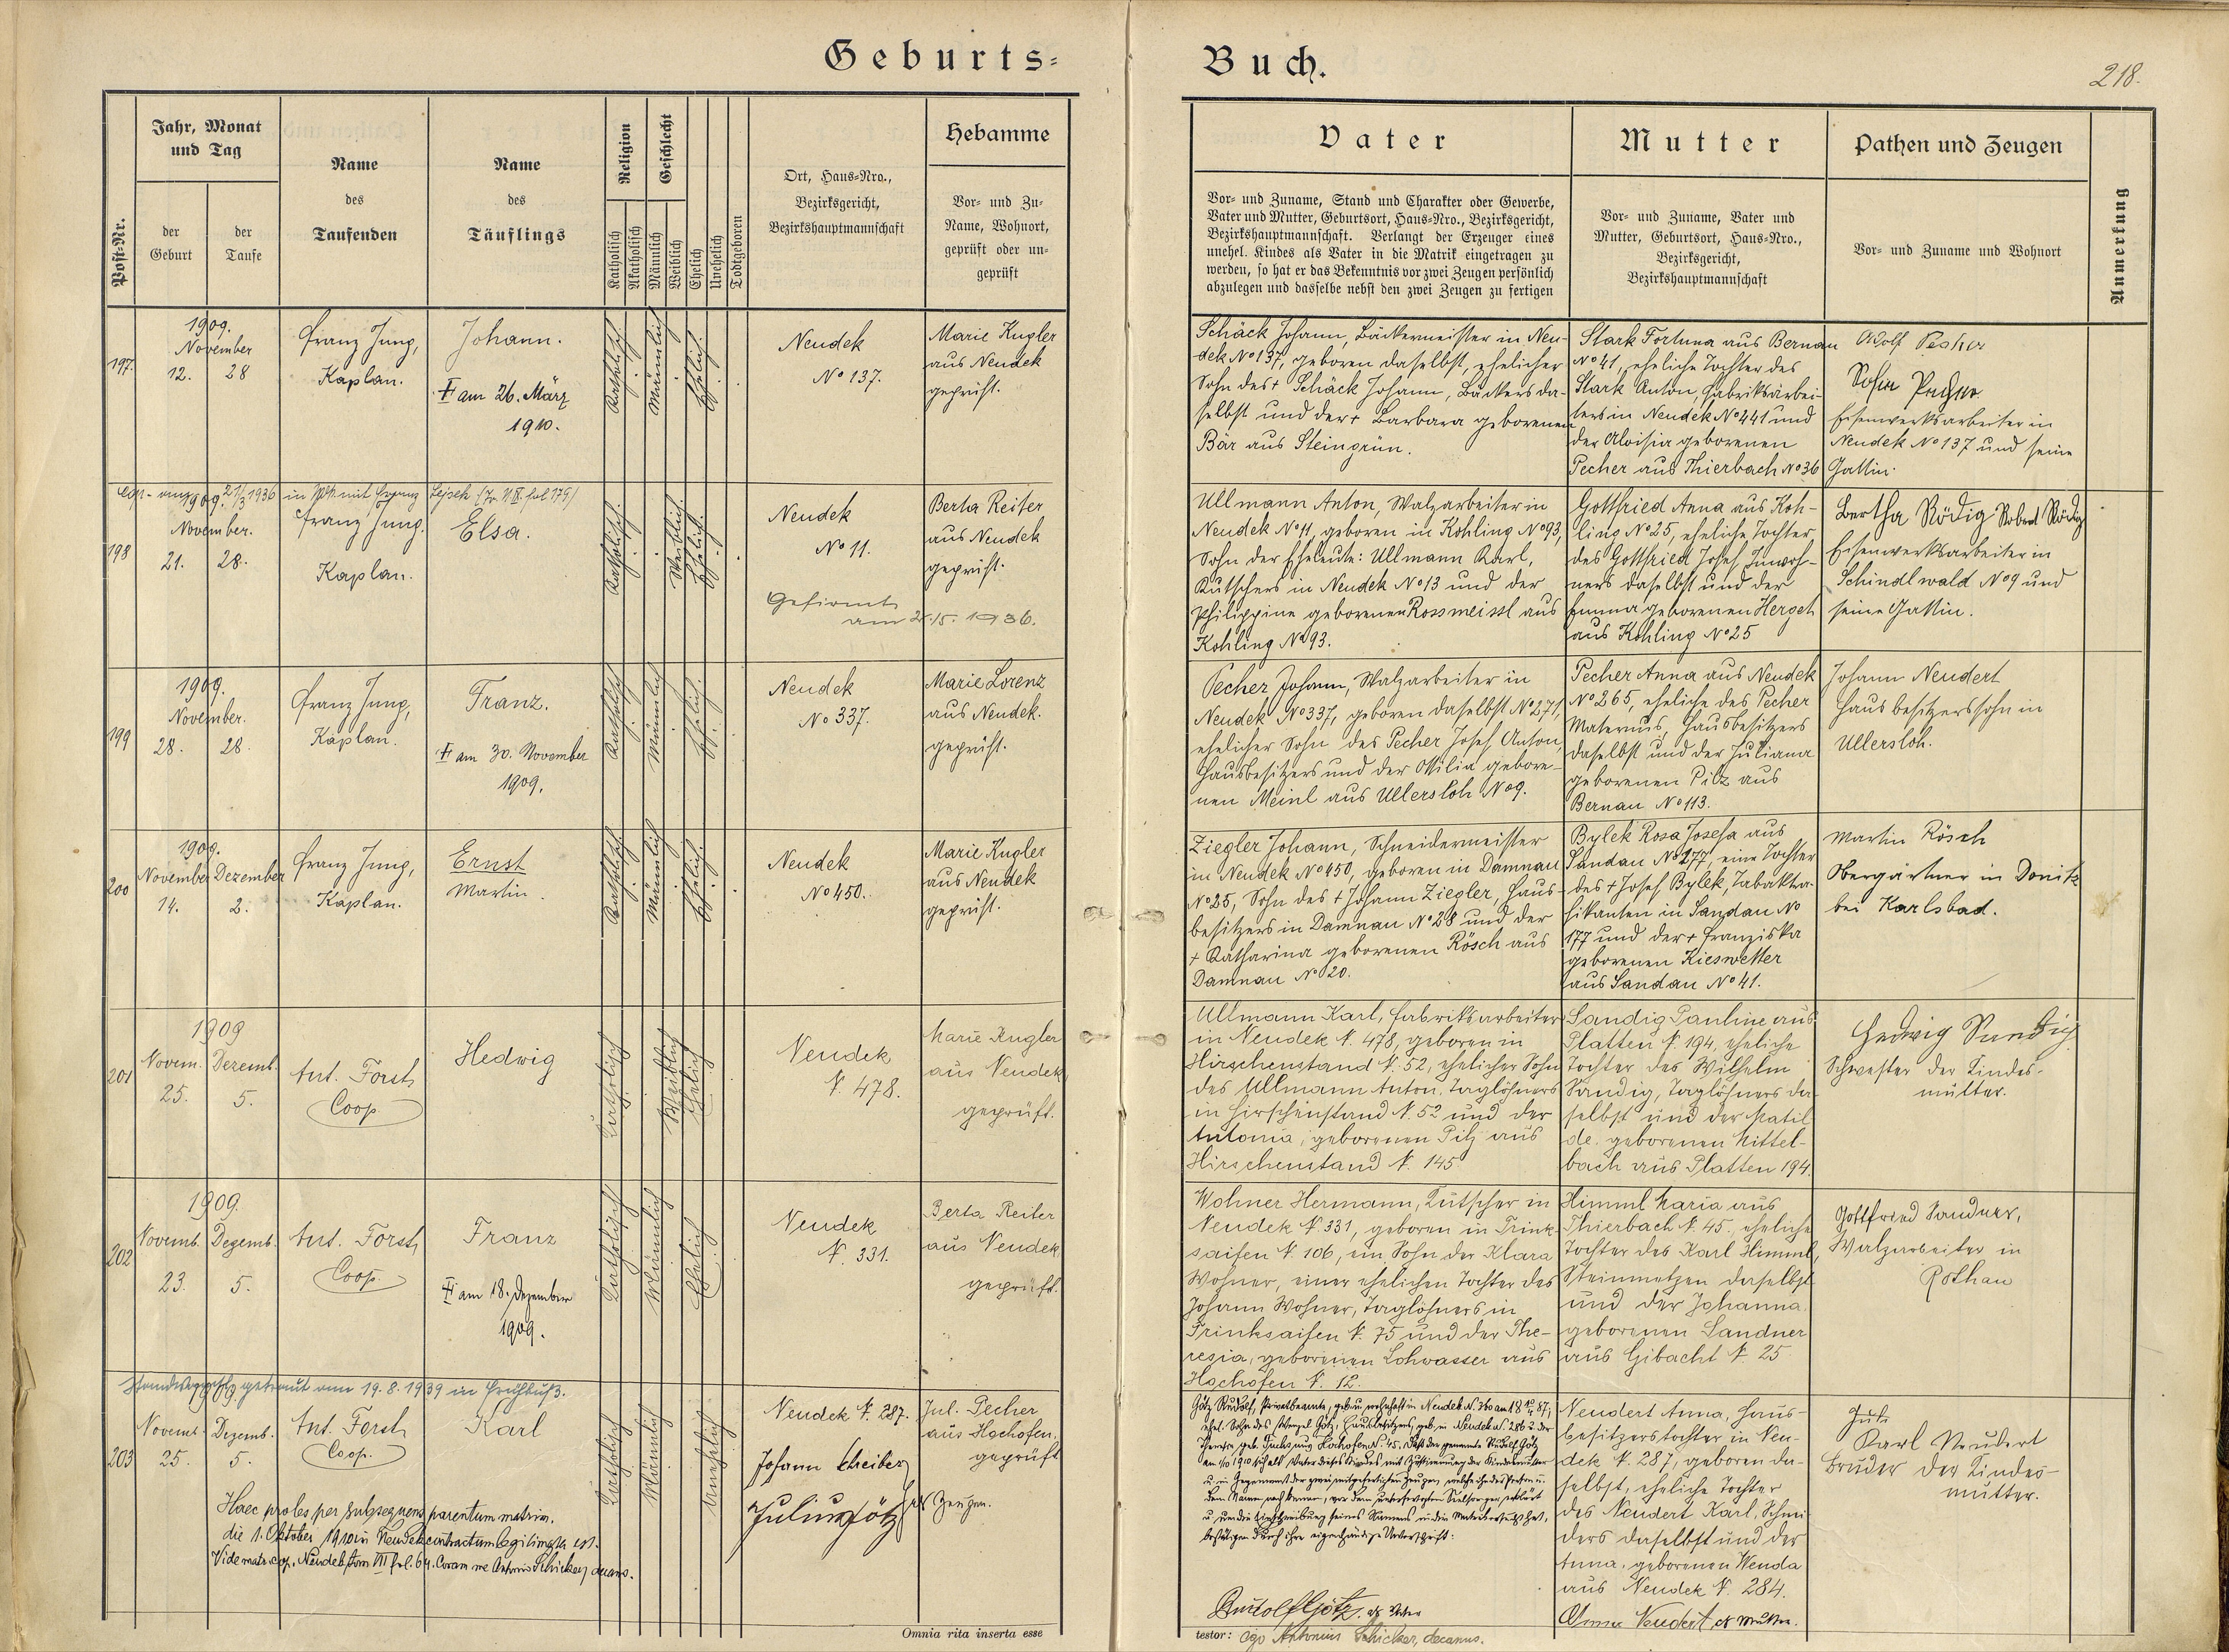 Geburts-
Buch.
218.
Post-Nr.
Jahr, Monat
und Tag
der
Geburt
der
Taufe
Name
des
Taufenden
Name
des
Täuflings
Religion
Katholisch
Akatholisch
Geschlecht
Männlich
Weiblich
Ehelich
Unehelich
Todtgeboren
Ort, Haus-Nro.,
Bezirksgericht,
Bezirkshauptmannschaft
Hebamme
Vor- und Zu-
Name, Wohnort,
geprüft oder un-
geprüft
Vater
Vor- und Zuname, Stand und Charakter oder Gewerbe,
Vater und Mutter, Geburtsort, Haus-Nro., Bezirksgericht,
Bezirkshauptmannschaft. Verlangt der Erzeuger eines
unehel. Kindes als Vater in die Matrik eingetragen zu
werden, so hat er das Bekenntnis vor zwei Zeugen persönlich
abzulegen und dasselbe nebst den zwei Zeugen zu fertigen
Mutter
Vor- und Zuname, Vater und
Mutter, Geburtsort, Haus-Nro.,
Bezirksgericht,
Bezirkshauptmannschaft
Pathen und Zeugen
Vor- und Zuname und Wohnort
Anmerkung
197.
1909.
November
12. 28
Franz Jung,
Kaplan.
Johann.
† am 26. März
1910.
Katholisch
Männlich
Ehelich.
Neudek
No 137.
Marie Kugler
aus Neudek
geprüft.
Schäck Johann, Bäckermeister in Neu-
dek No 137, geboren daselbst, ehelicher
Sohn des † Schäck Johann, Bäckers da-
selbst und der † Barbara geborenen
Bär aus Steingrün.
Stark Fortuna aus Bernau
No 41, eheliche Tochter des
Stark Anton, Fabriksarbei-
ters in Neudek No 441 und
der Aloisia geborenen
Pecher aus Thierbach No 36
Adolf Pecher
Eisenwerksarbeiter in
Neudek No 137 und seine
Gattin.
198
1909. 21/3 1936 in
November.
21. 28.
Franz Jung,
Kaplan.
Elsa.
Katholisch.
Weiblich.
Ehelich.
Neudek
No 11.
Gefirmt
am 2./5. 1936.
Berta Reiter
aus Neudek
geprüft.
Ullmann Anton, Walzarbeiter in
Neudek No 11, geboren in Kohling No 93,
Sohn der Eheleute: Ullmann Karl,
Kutschers in Neudek No 13 und der
Philippine geborenen Rossmeissl aus
Kohling No 93.
Gottfried Anna aus Koh-
ling No 25, eheliche Tochter
des Gottfried Josef, Inwoh-
ners daselbst und der
Emma geborenen Hergeth
aus Kohling No 25
Bertha Rödig Robert Rödig
Eisenwerksarbeiter in
Schindlwald No 9 und
seine Gattin.
199
1909.
November.
28. 28.
Franz Jung,
Kaplan.
Franz.
† am 30. November
1909.
Katholisch
Männlich
Ehelich.
Neudek
No 337.
Marie Lorenz
aus Neudek.
geprüft.
Pecher Johann, Walzarbeiter in
Neudek No 337, geboren daselbst No 271,
ehelicher Sohn des Pecher Josef Anton,
Hausbesitzers und der Ottilia gebore-
nen Meinl aus Ullersloh No 9.
Pecher Anna aus Neudek
No 265, eheliche des Pecher
Maternus, Hausbesitzers
daselbst und der Juliana
geborenen Pilz aus
Bernau No 113.
Johann Neudert
Hausbesitzerssohn in
Ullersloh.
200
1909.
November Dezember
14. 2.
Franz Jung,
Kaplan.
Ernst
Martin.
Katholisch
Männlich
Ehelich.
Neudek
No 450.
Marie Kugler
aus Neudek
geprüft.
Ziegler Johann, Schneidermeister
in Neudek No 450, geboren in Damnau
No 25, Sohn des † Johann Ziegler, Haus-
besitzers in Damnau No 28 und der
† Katharina geborenen Rösch aus
Damnau No 20.
Bylek Rosa Josefa aus
Sandau No 177, eine Tochter
des † Josef Bylek, Tabaktra-
fikanten in Sandau No
177 und der † Franziska
geborenen Kieswetter
aus Sandau No 41.
Martin Rösch
Obergärtner in Donitz
bei Karlsbad.
201
1909
Novem. Dezemb.
25. 5.
Ant. Forst,
Coop.
Hedwig
Katholisch
Weiblich
Ehelich
Neudek
N. 478.
Marie Kugler
aus Neudek
geprüft.
Ullmann Karl, Fabriksarbeiter
in Neudek N. 478, geboren in
Hirschenstand N. 52, ehelicher Sohn
des Ullmann Anton, Taglöhners
in Hirschenstand N. 52 und der
Antonia, geborenen Pilz aus
Hirschenstand N. 145.
Sandig Pauline aus
Platten N. 194, eheliche
Tochter des Wilhelm
Sandig, Taglöhners da-
selbst und der Matil-
de, geborenen Mittel-
bach aus Platten 194.
Hedwig Sandig
Schwester der Kindes-
mutter.
202
1909.
Novemb. Dezemb.
23. 5.
Ant. Forst,
Coop.
Franz
† am 18. Dezember
1909.
Katholisch
Männlich
Ehelich
Neudek
N. 331.
Berta Reiter
aus Neudek
geprüft.
Wohner Hermann, Kutscher in
Neudek N. 331, geboren in Trink-
saifen N. 106, ein Sohn der Klara
Wohner, einer ehelichen Tochter des
Johann Wohner, Taglöhners in
Trinksaifen N. 75 und der The-
resia, geborenen Lohwasser aus
Hochofen N. 12.
Himml Maria aus
Thierbach N. 45, eheliche
Tochter des Karl Himml,
Steinmetzen daselbst
und der Johanna,
geborenen Sandner
aus Gibacht N. 25
Gottfried Sandner,
Walzarbeiter in
Rothau
getraut am 19.8.1939 in Frühbuß.
203
Novemb. Dezemb.
25. 5.
Ant. Forst,
Coop.
Karl
Katholisch
Männlich
Unehelich
Neudek N. 287.
Johann Schreiber
Julius Götz als Zeugen.
Jul. Pecher
aus Hochofen.
geprüft
Haec proles per subsequens parentum matrim.
die 1. Oktober 1910 in Neudek contractum legitimata est.
Vide matr. cop. Neudek tom VII fol. 64. Coram me Antonio Schicker, decano.
Götz Rudolf, Privatbeamte,
ehel. Sohn des Wenzel Götz, Hausbesitzers
Rudolf Götz, als Vater
Neudert Anna, Haus-
besitzerstochter in Neu-
dek N. 287, geboren da-
selbst, eheliche Tochter
des Neudert Karl, Schnei-
ders daselbst und der
Anna, geborenen Wenda
aus Neudek N. 284.
Anna Neudert, als Mutter.
Karl Neudert
Bruder der Kindes-
mutter.
Omnia rita inserta esse
testor: ego Antonius Schicker, decanus.